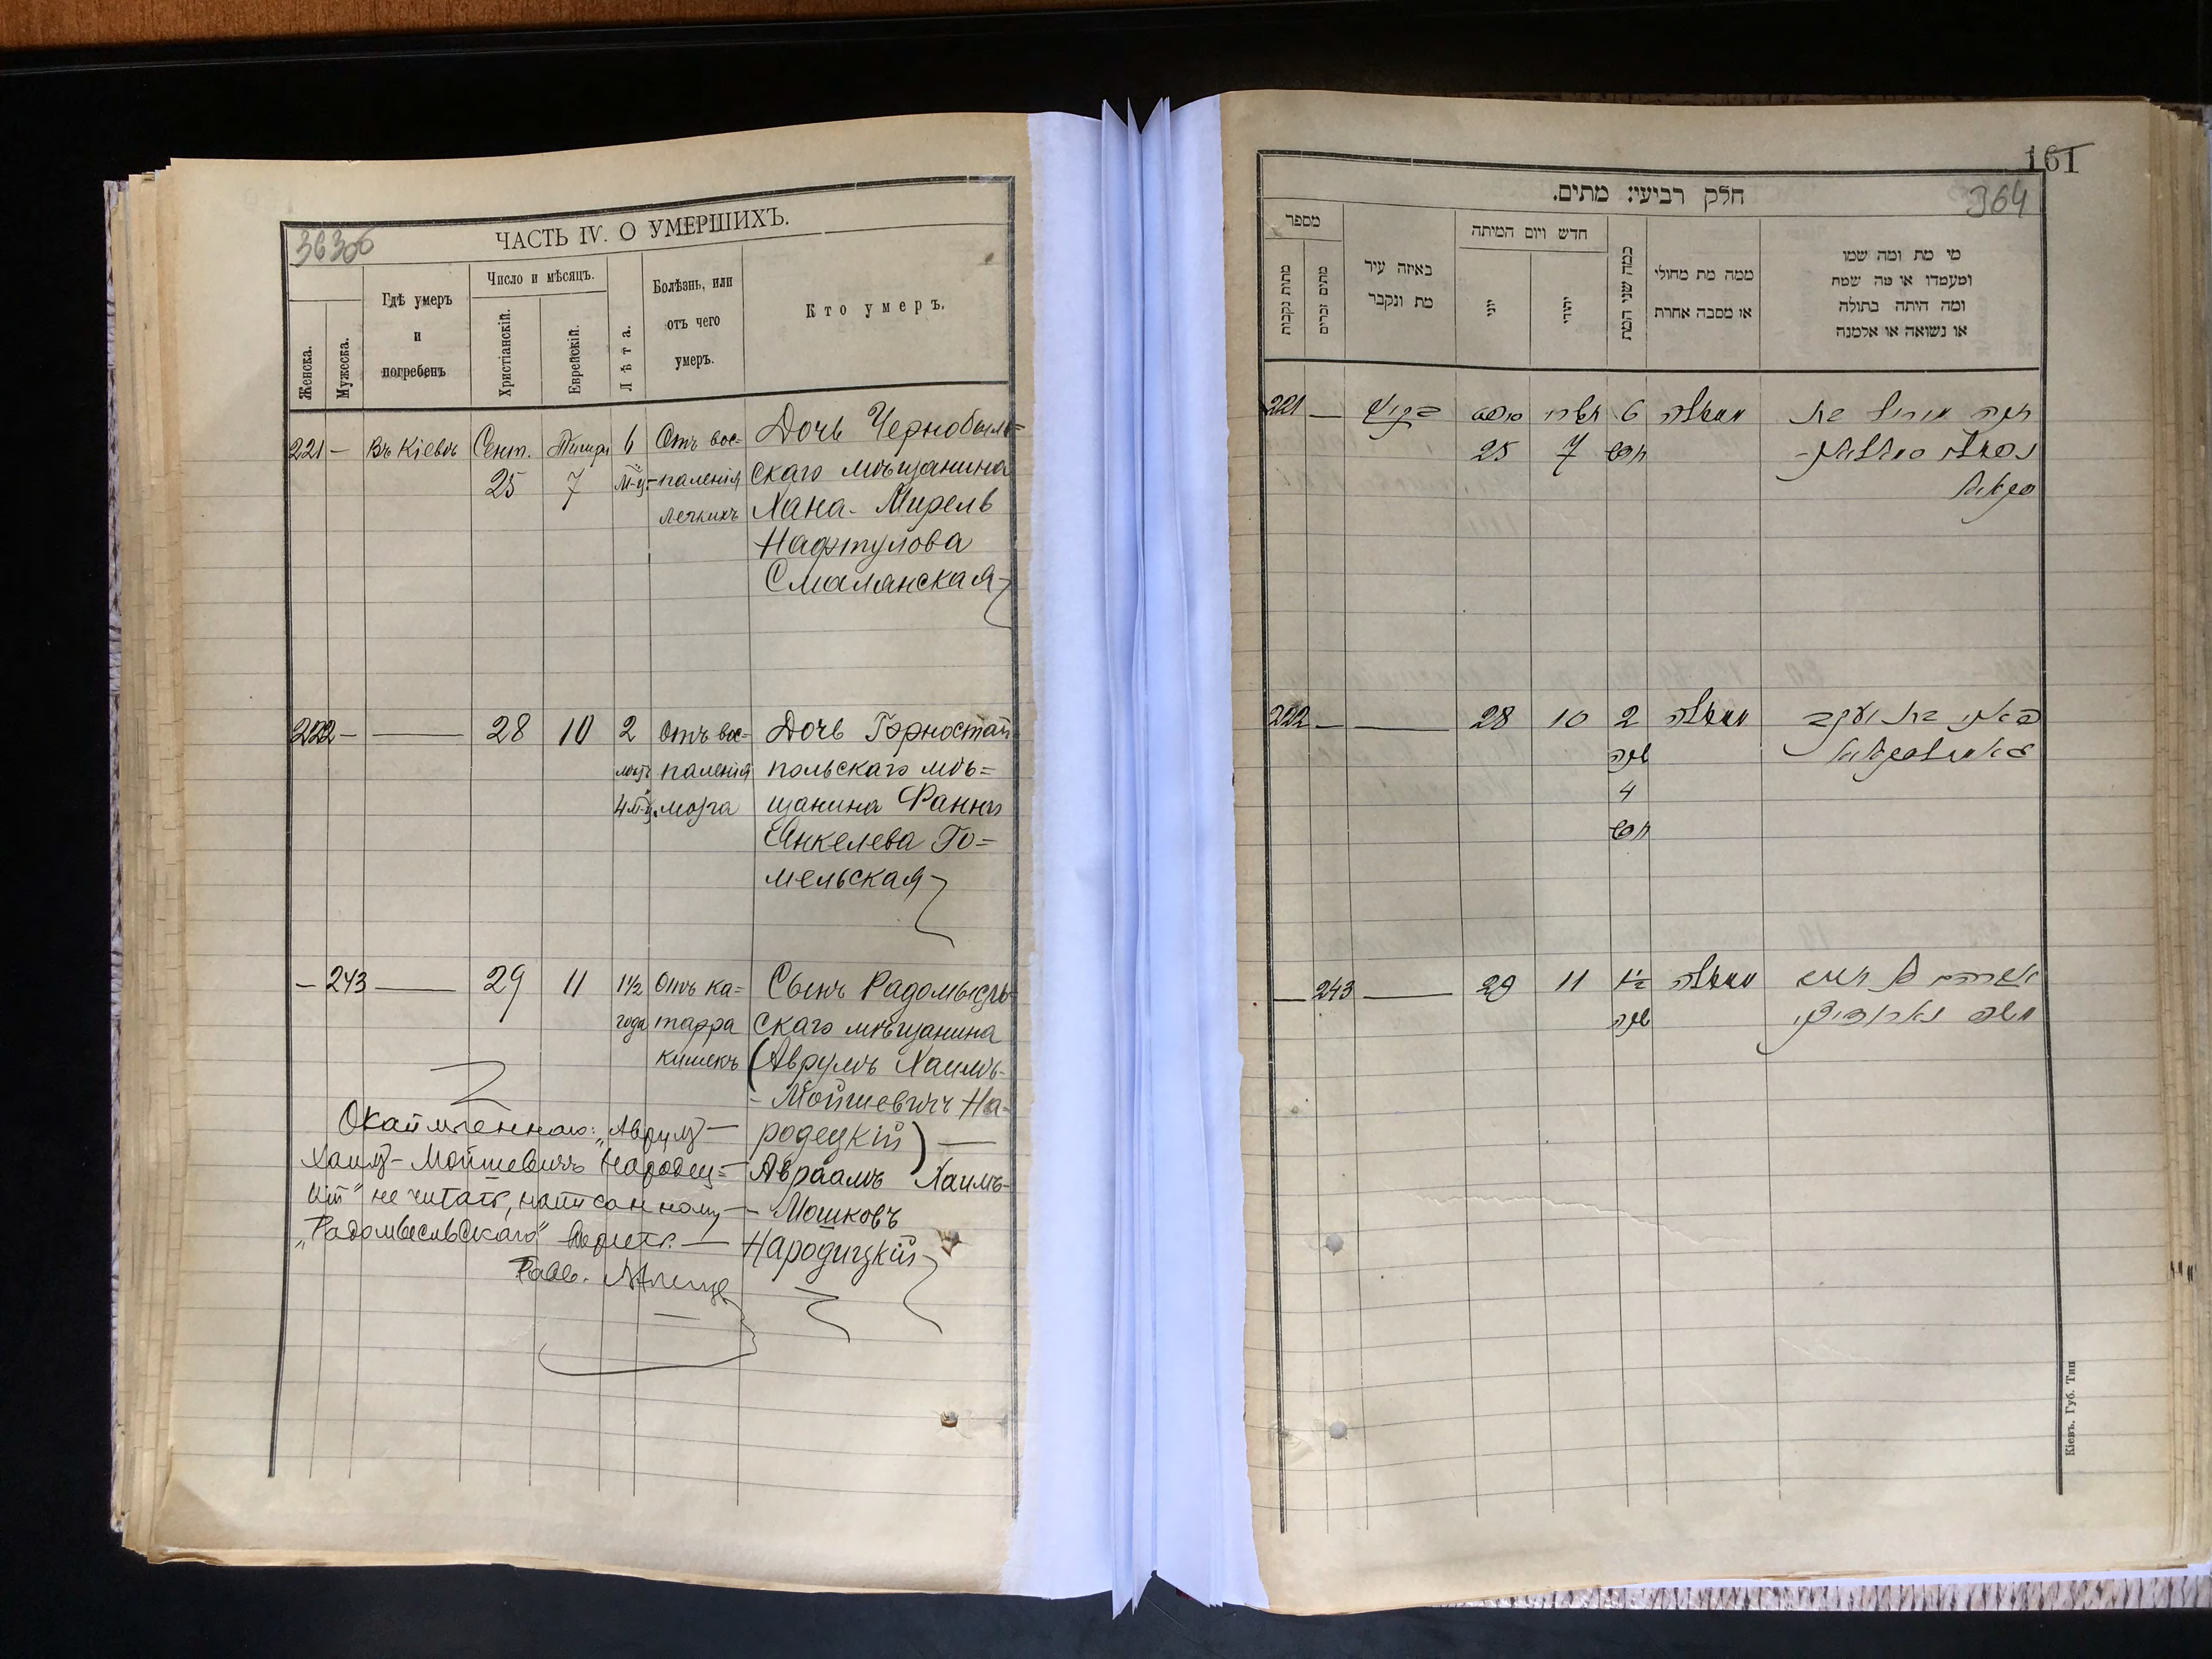 363об
ЧАСТЬ IV. О УМЕРШИХЪ.
Женска.
Мужеска.
Гдѣ умеръ
и
погребенъ
Число и мѣсяцъ.
Христіанскій.
Еврейскій.
Лѣта.
Болѣзнь, или
отъ чего
умеръ.
Кто умеръ.
221 — Въ Кіевѣ Сент. Тишри 6 Отъ вос= Дочь Чернобыль=
25 7 м-ц. паленія скаго мѣщанина
легкихъ Хана-Мирель
Нафтулова
Смолянская
222 — — 28 10 2 Отъ вос= Дочь Горностай
паленія польскаго мѣ=
4 м-ц. мозга щанина Фанни
Янкелева Го=
мельская
— 243 — 29 11 1½ Отъ ка= Сынъ Радомысль
года тарра скаго мѣщанина
кишекъ (Аврумъ Хаимъ-
- Мойшевичъ На=
родецкій) —
Авраамъ Хаимъ-
- Мошковъ
Народицкій
Окаймленнаго: „Аврумъ —
Хаимъ-Мойшевичъ Народец=
кій" не читать, написанному —
„Радомысльскаго" вѣрить. —
Равв.
161
364
חלק רביעי: מתים.
מספר
מתות נקבות
מתים זכרים
באיזה עיר
מת ונקבר
חדש ויום המיתה
יוני
יהודי
כמה שני המת
ממה מת מחולי
או מסבה אחרת
מי מת ומה שמו
ומעמדו או מה שמת
ומה היתה בתולה
או נשואה או אלמנה
221 — תשרי 6 חנה מירל בת
25 7 חדש
222 — — 28 10 2 פאני בת יעקב
שנה
4
חדש
— 243 — 29 11 1½ אברהם חיים
שנה משה
Кіевъ. Губ. Тип